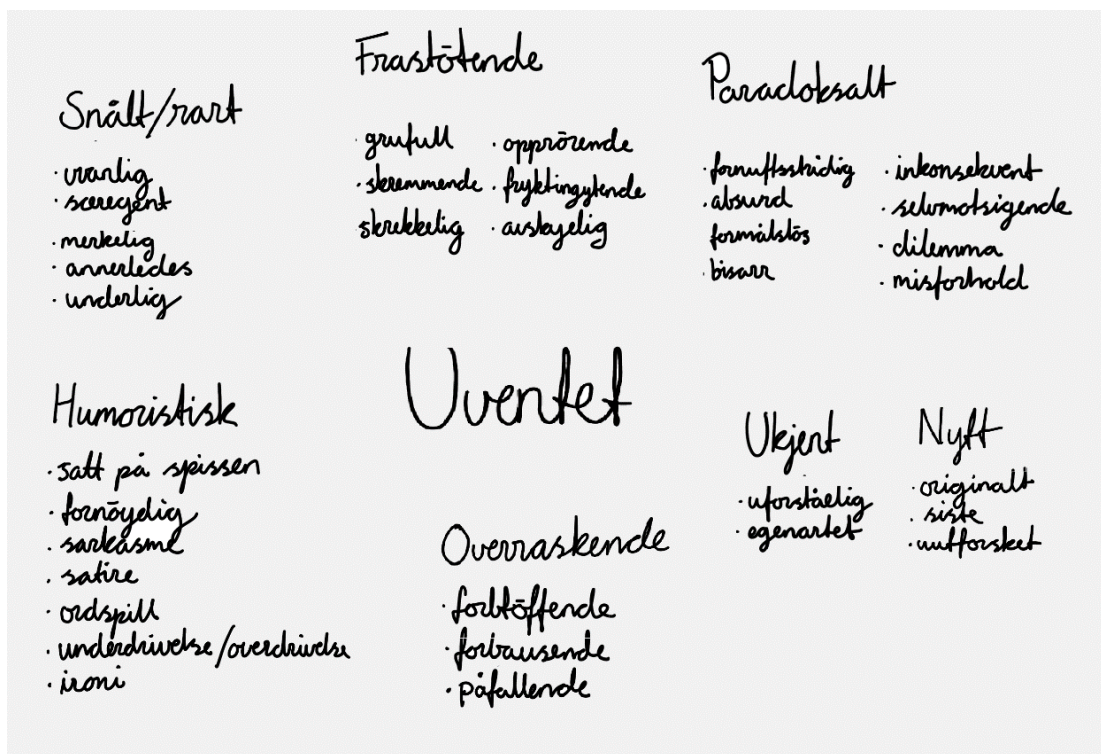 Snålt/rart
· uvanlig
· særegent
· merkelig
· annerledes
· underlig
Frastōtende
· grufull
· skremmende
skrekkelig
· opprōrende
· fryktingytende
· avskyelig
Paradoksalt
· fornuftsstridig
· absurd
formålslōs
· bisarr
· inkonsekvent
· selvmotsigende
· dilemma
· misforhold
Uventet
Humoristisk
· satt på spissen
· fornōyelig
· sarkasme
· satire
· ordspill
· underdrivelse/overdrivelse
· ironi
Overraskende
· forblōffende
· forbausende
· påfallende
Ukjent
· uforståelig
· egenartet
Nytt
· originalt
· siste
· uutforsket